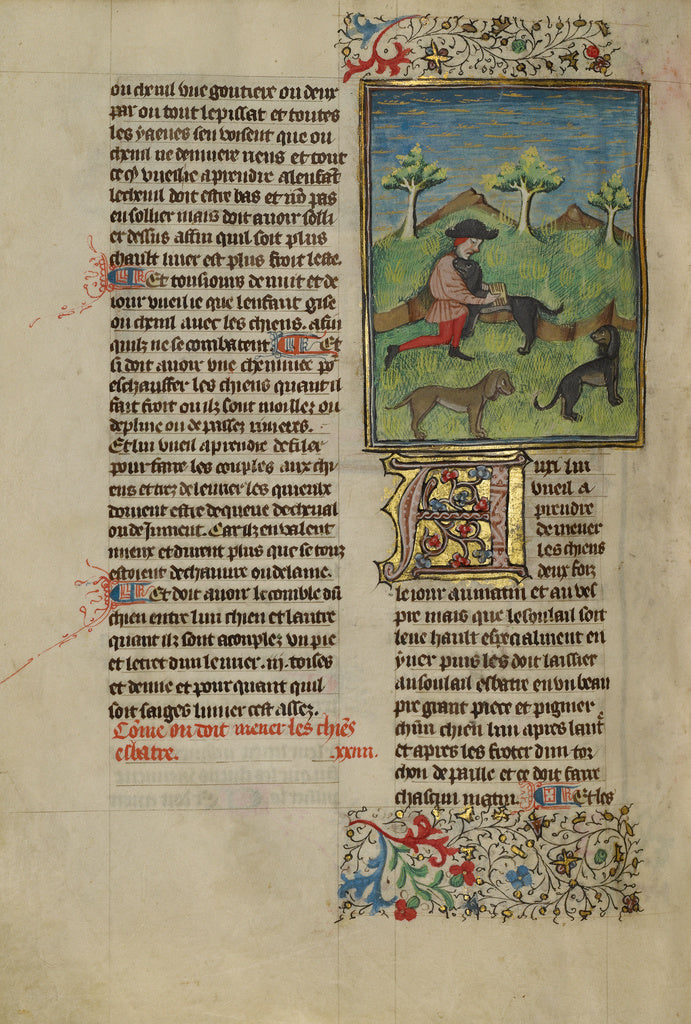 ou chenil vne goutiere ou deux
par ou tout le pissat et toutes
les yaeues sen voisent que ou
chenil ne demeure riens et tout
ce q̃ vueil ie aprendre a lenfãt
le chenil doit estre bas et nõ pas
en sollier mais doit auoir solli
er dessus affin quil soit plus
chault yuer est plus froit leste.
Et tousiours de nuit et de
iour vueil ie que lenfant gise
ou chenil auec les chiens. afin
quilz ne se combatent Et
si doit auoir vne cheminee põ
eschauffer les chiens quant il
fait froit ou ilz sont moillez ou
de pluie ou de passez riuieres.
Et lui vueil aprendre de filer
pour faire les couples aux chi
ens et traiz de leurier les quieulx
doiuent estre de queue de cheual
ou de Iument. Car ilz en valent
mieux et durent plus que se touz
estoient de chanure ou de laine.
Et doit auoir le comble du
chien entre lun chien et lautre
quant ilz sont acouplez vn pie
et le tret dun leurier .iij. toises
et demie et pour quant quil
soit saiges limier cest assez.
Cõme on doit mener les chiẽs
esbatre. .xxiiii.
Auxi lui
vueil a
prendre
de mener
les chiens
deux foiz
le iour au matin et au ves
pre mais que le soulail soit
leue hault especialment en
yuer puis les doit laissier
au soulail esbatre en vn beau
pre grant piece et pigmer
chũn chien lun apres lautr̃
et apres les froter dun tor
chon de paille et ce doit faire
chascun matin. Et les